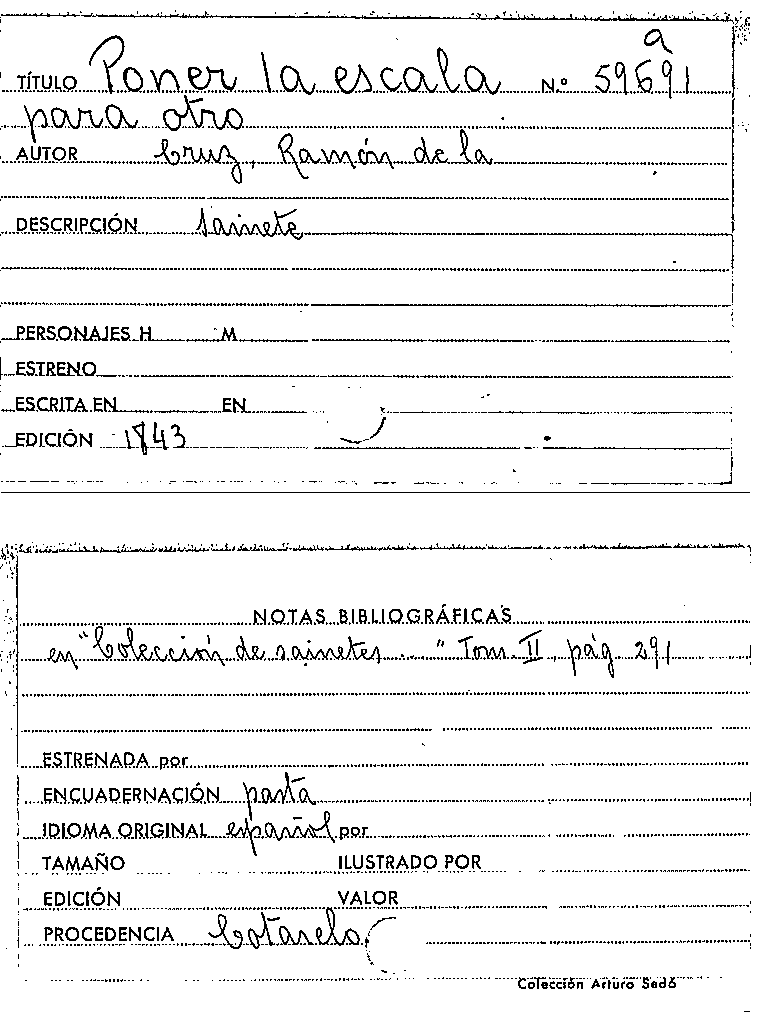 a
TÍTULO Poner la escala N.º 59691
para otro
AUTOR Cruz, Ramón de la
DESCRIPCIÓN Sainete
PERSONAJES H M
ESTRENO
ESCRITA EN EN
EDICIÓN 1843
NOTAS BIBLIOGRÁFICAS
en "Colección de sainetes..." Tom. II, pág. 291
ESTRENADA por
ENCUADERNACIÓN pasta
IDIOMA ORIGINAL español por
TAMAÑO ILUSTRADO POR
EDICIÓN VALOR
PROCEDENCIA Cotarelo
Colección Arturo Sedó